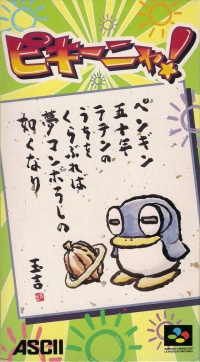 ピキーニャ!
ペンギン
五十年
テチンの
うちを
くらぶれは
夢コンボらしの
如くなり
玉吉
ASCII